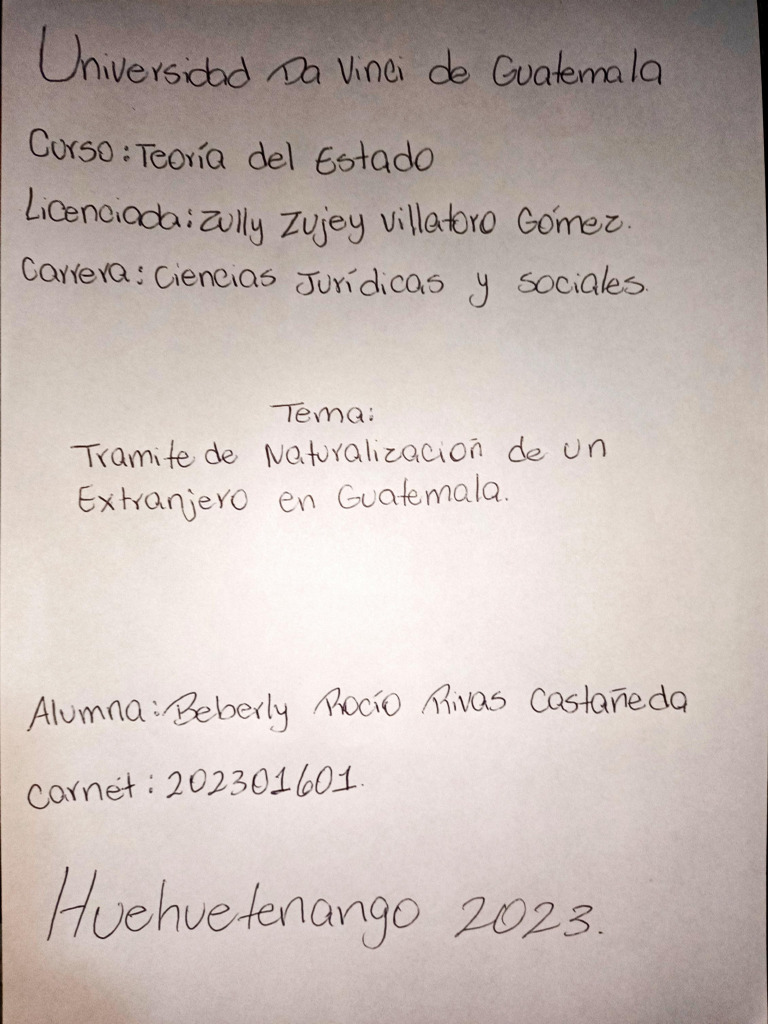 Universidad Da Vinci de Guatemala
Curso: Teoría del Estado
Licenciada: Zully Zujey Villatoro Gómez.
Carrera: Ciencias Jurídicas y sociales.
Tema:
Tramite de Naturalización de un
Extranjero en Guatemala.
Alumna: Beberly Rocío Rivas Castañeda
Carnét: 202301601.
Huehuetenango 2023.